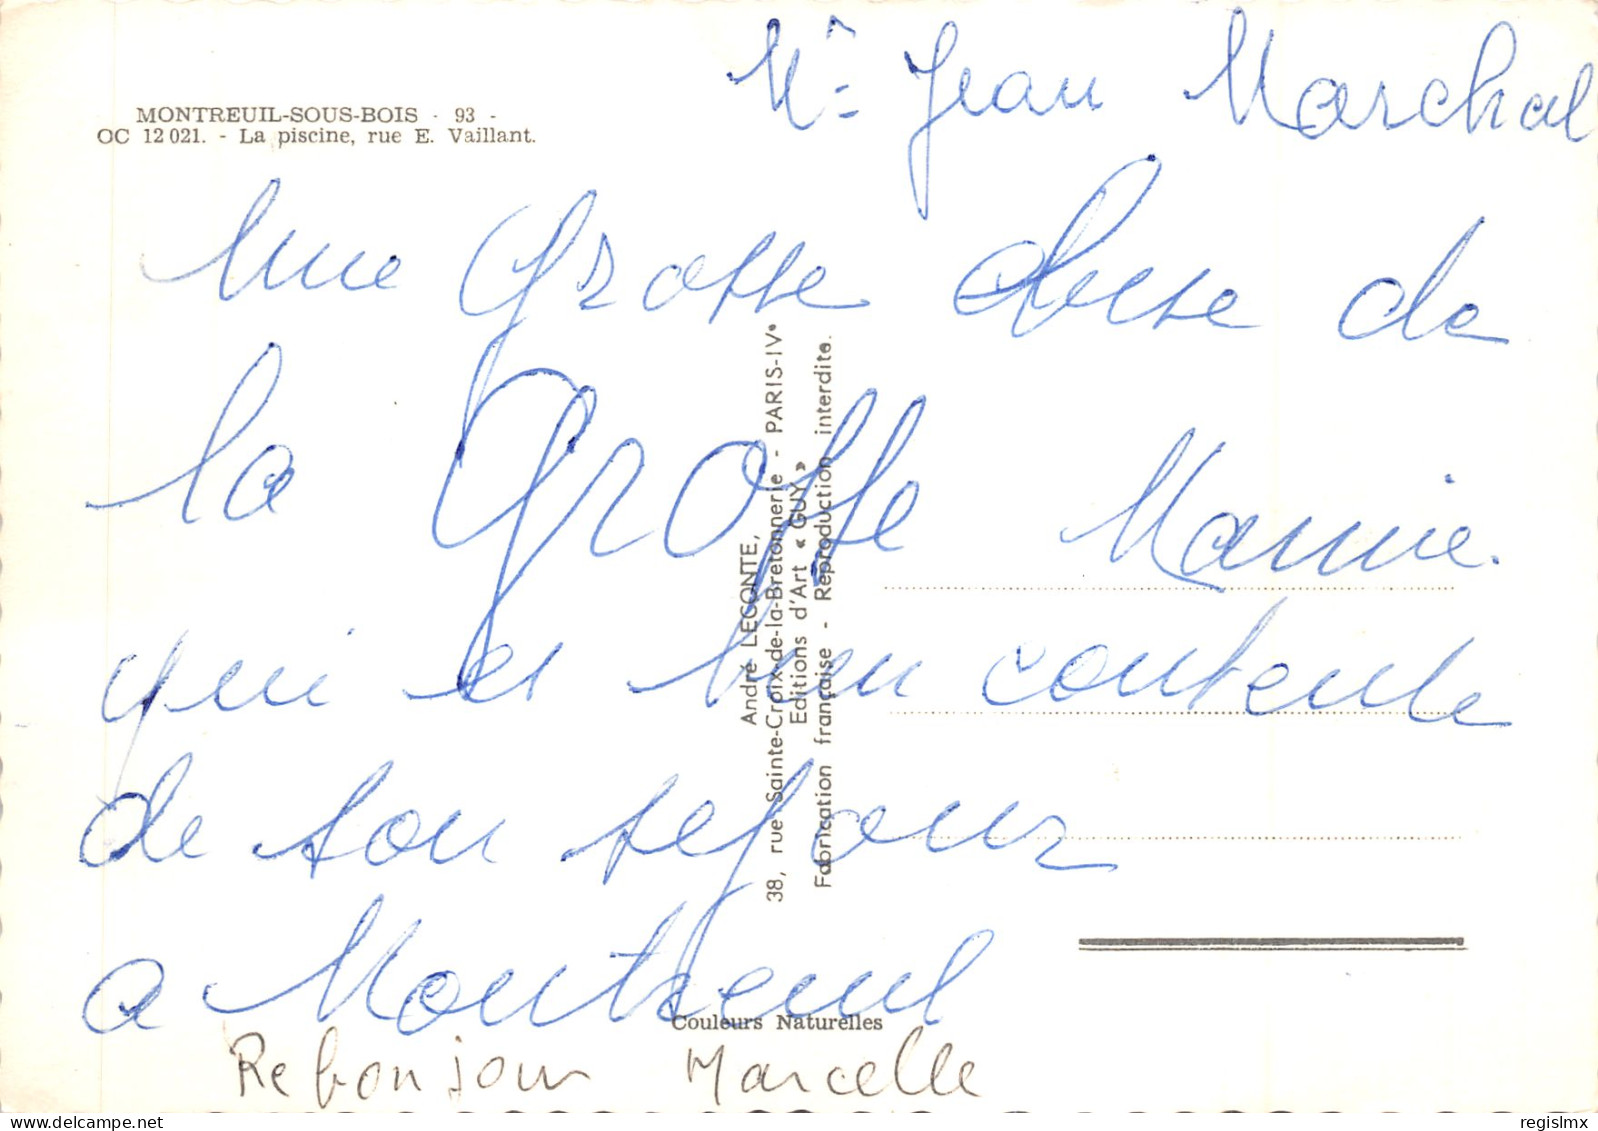 MONTREUIL-SOUS-BOIS - 93 -
OC 12 021. - La piscine, rue E. Vaillant.
Mr Jean Marchal
Une Grosse de
la Grosse Mamie.
qui es bien contente
de son sejour
a Montreuil
Rebonjour Marcelle
André LECONTE,
38, rue Sainte-Croix-de-la-Bretonnerie - PARIS-IVe
Editions d'Art « GUY »
Fabrication française - Reproduction interdite.
Couleurs Naturelles
regislmx